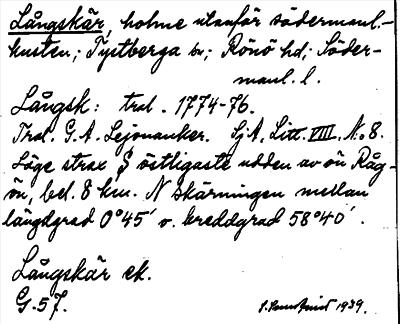 Långskär, holme utanför södermanl.-
kusten; Tystberga sn; Rönö hd; Söder-
manl. l.
Långsk: tral. 1774-76.
Tral. G. A. Lejonanker. Sj A, Litt. VIII, N:o 8.
Läge strax S östligaste udden av ön Råg-
ön, bel. 8 km. N skärningen mellan
längdgrad 0°45′ o. breddgrad 58°40′.
Långskär ek.
G. 57.
1939.